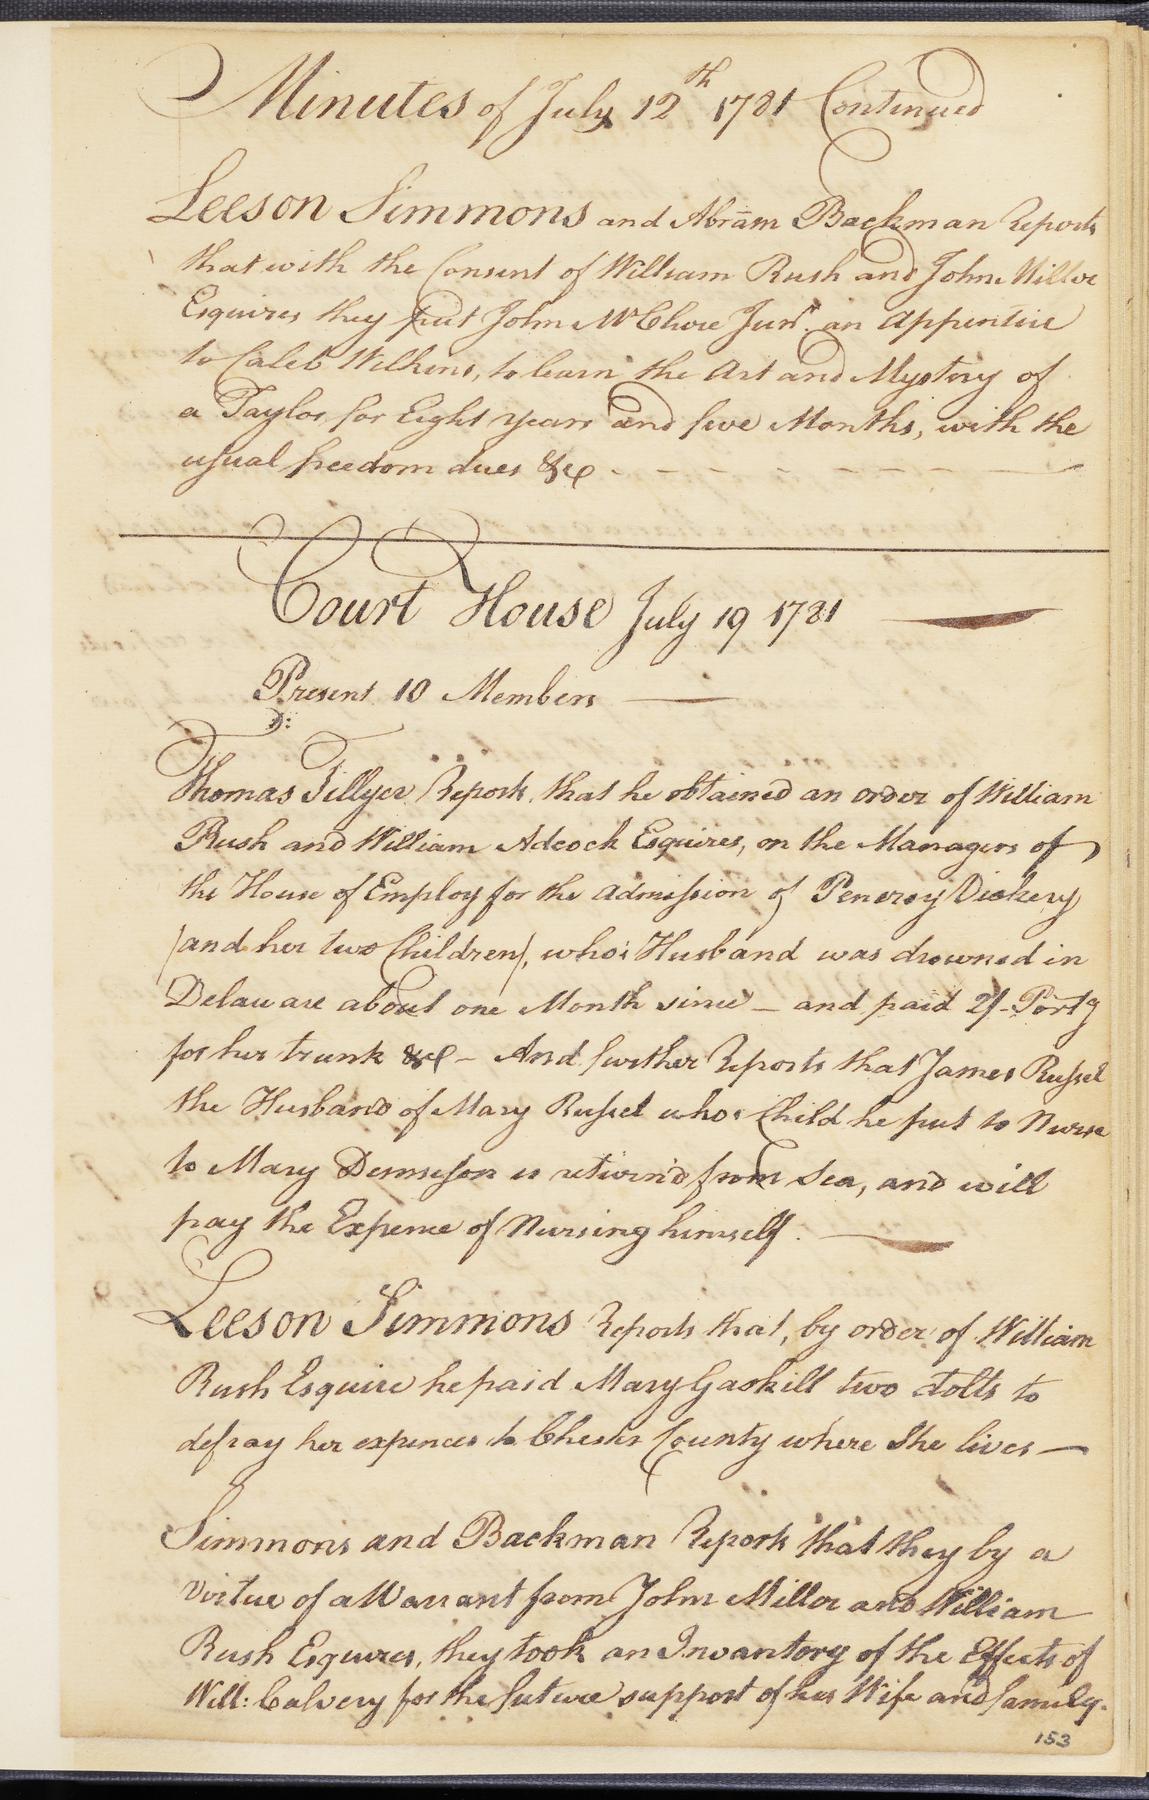 Minutes of July 12th 1781 Continued
Leeson Simmons and Abram Backman Reports
that with the Consent of William Rush and John Miller
Esquires they put John McClure Junr. an Apprentice
to Caleb Wilkins, to learn the Art and Mystery of
a Taylor for Eight years and five Months, with the
usual freedom dues &c
Court House July 19 1781
Present 10 Members
Thomas Tillyer Reports, that he obtained an order of William
Rush and William Adcock Esquires, on the Managers of
the House of Employ for the admission of Dickery
(and her two Children), who's Husband was drowned in
Delaware about one Month since — and paid 2/- Port'g
for her trunk &c — And further Reports that James Russel
the Husband of Mary Russel whos Child he put to Nurse
to Mary is return'd from Sea, and will
pay the Expence of Nursing himself.
Leeson Simmons Reports that, by order of William
Rush Esquire he paid Mary Gaskill two dolls to
defray her expences to Chester County where She lives —
Simmons and Backman Reports that they by a
Virtue of a Warrant from John Miller and William
Rush Esquires, they took an Invantory of the Effects of
Will: Calvery for the future support of his Wife and family.
153